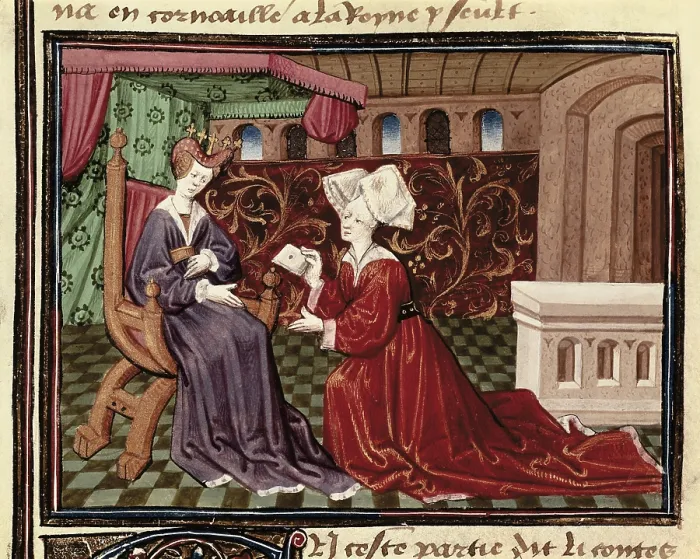 na en cornoaille a la Royne yseult.
En ceste partie dit li contes